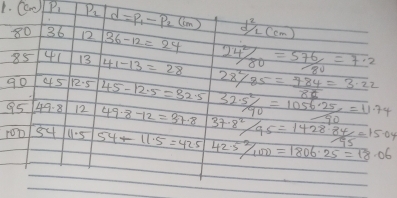 l. (cm) P₁ P₂ d=P₁-P₂ (cm) d²/L (cm)
80 36 12 36-12= 24 24²/80 = 576/80 = 7.2
85 41 13 41-13= 28 28²/85 = 784/85 = 3.22
90 45 12.5 45-12.5 = 32.5 32.5²/90 = 1056.25/90 = 11.74
95 49.8 12 49.8-12= 37.8 37.8²/95 = 1428.84/95 = 15.04
100 54 11.5 54-11.5=42.5 42.5²/100 = 1806.25 = 18.06